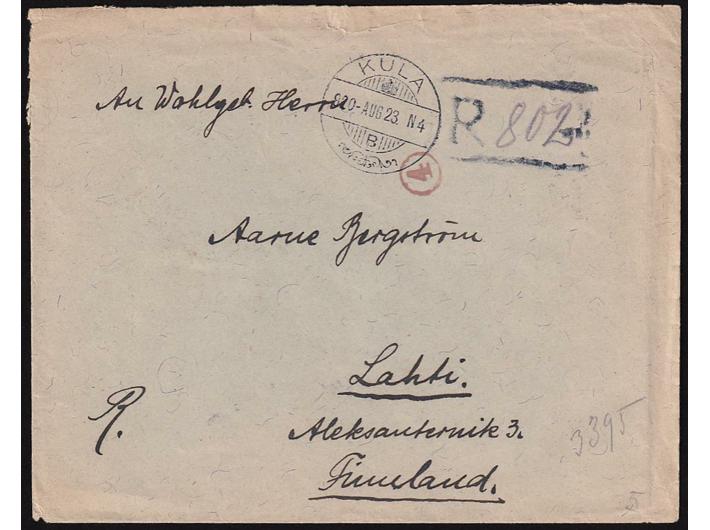 KULA
920-AUG 23. N4
B
R 802
4
An Wohlgeb. Herrn
Aarne Bergström
Lahti.
R.
Aleksanternik 3.
Finnland.
3395
5